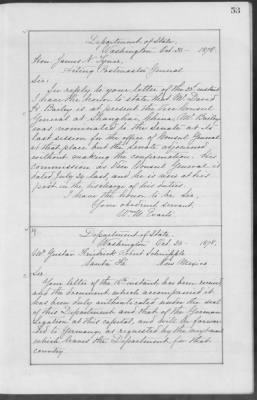 53
Department of State,
Washington Oct. 30 1878.
Hon. James N. Tyner,
Acting Postmaster General.
Sir:
In reply to your letter of the 23d instant
I have the honor to state that Mr. David
H. Bailey is at present the Vice Consul
General at Shanghai, China. Mr. Bailey
was nominated to the Senate at its
last session for the office of Consul General
at that place but the Senate adjourned
without making the confirmation. His
commission as Vice Consul General is
dated July 24 last, and he is now at his
post in the discharge of his duties.
I have the honor to be, Sir,
Your obedient servant,
Wm. M. Evarts.
Department of State.
Washington Oct. 30 1878.
Mr. Gustav Friedrich Schnepple
Santa Fé New Mexico
Sir
Your letter of the instant, has been received
and the document which accompanied it
has been duly authenticated under the seal
of this Department and that of the German
Legation at this capital, and will be forwar
ded to Germany as requested by the next mail
which leaves the Department for that
country.